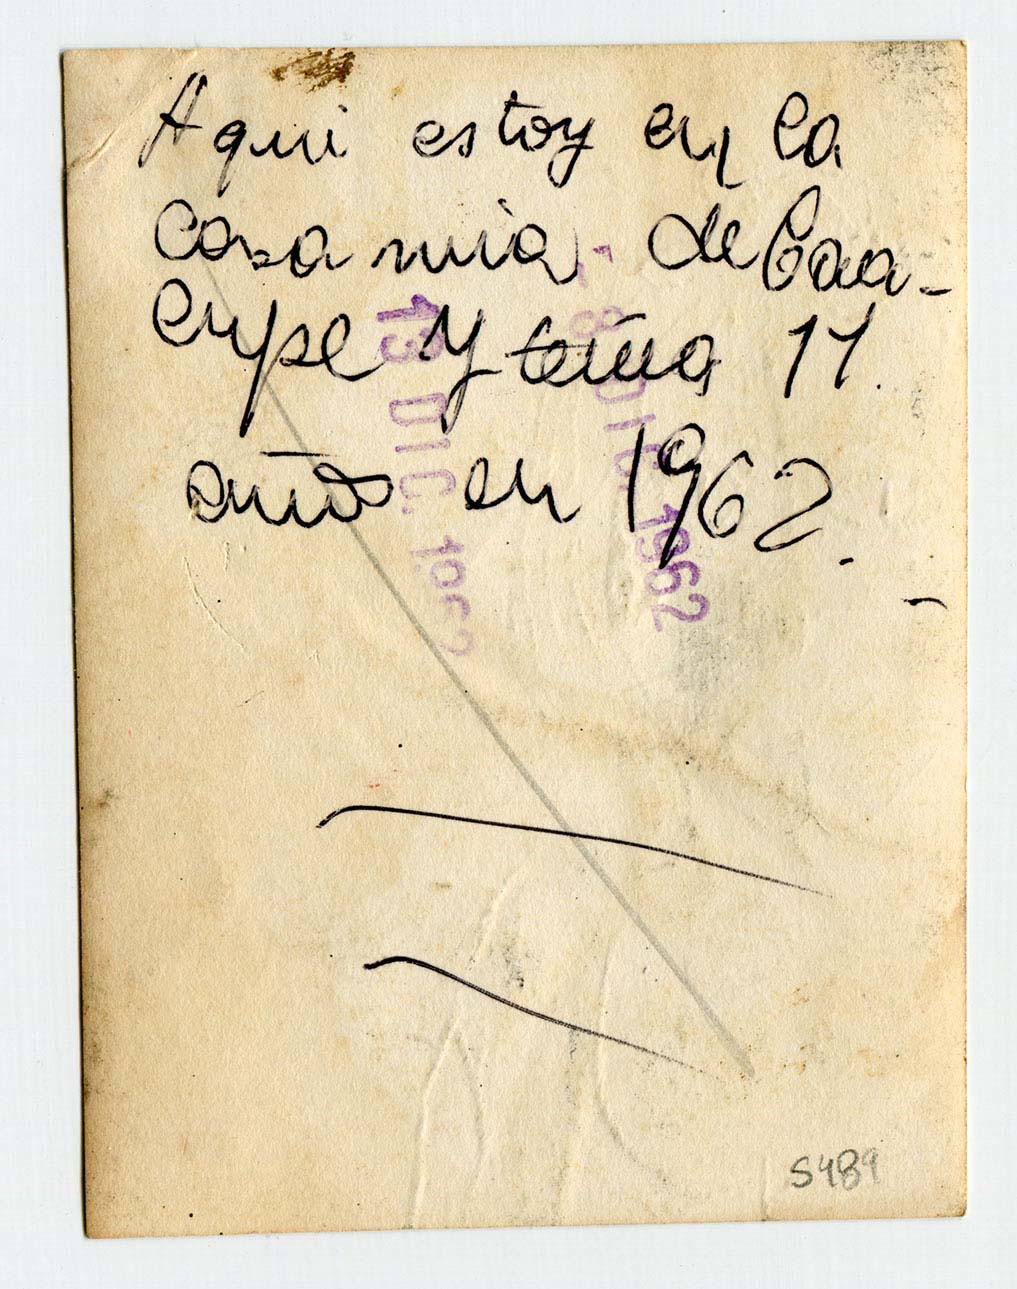 Aqui estoy en la
casa mia de Caa-
cupe y tenia 11
años en 1962.
13 DIC. 1962
8 DIC. 1962
S489